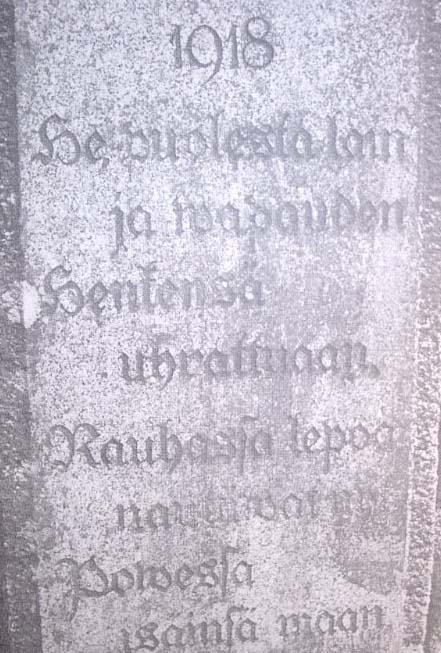 1918
He puolesta lain
ja wapauden
Henkensä
uhrattuaan,
Rauhassa lepoa
nauttiwat nyt
Powessa
isäinsä maan.